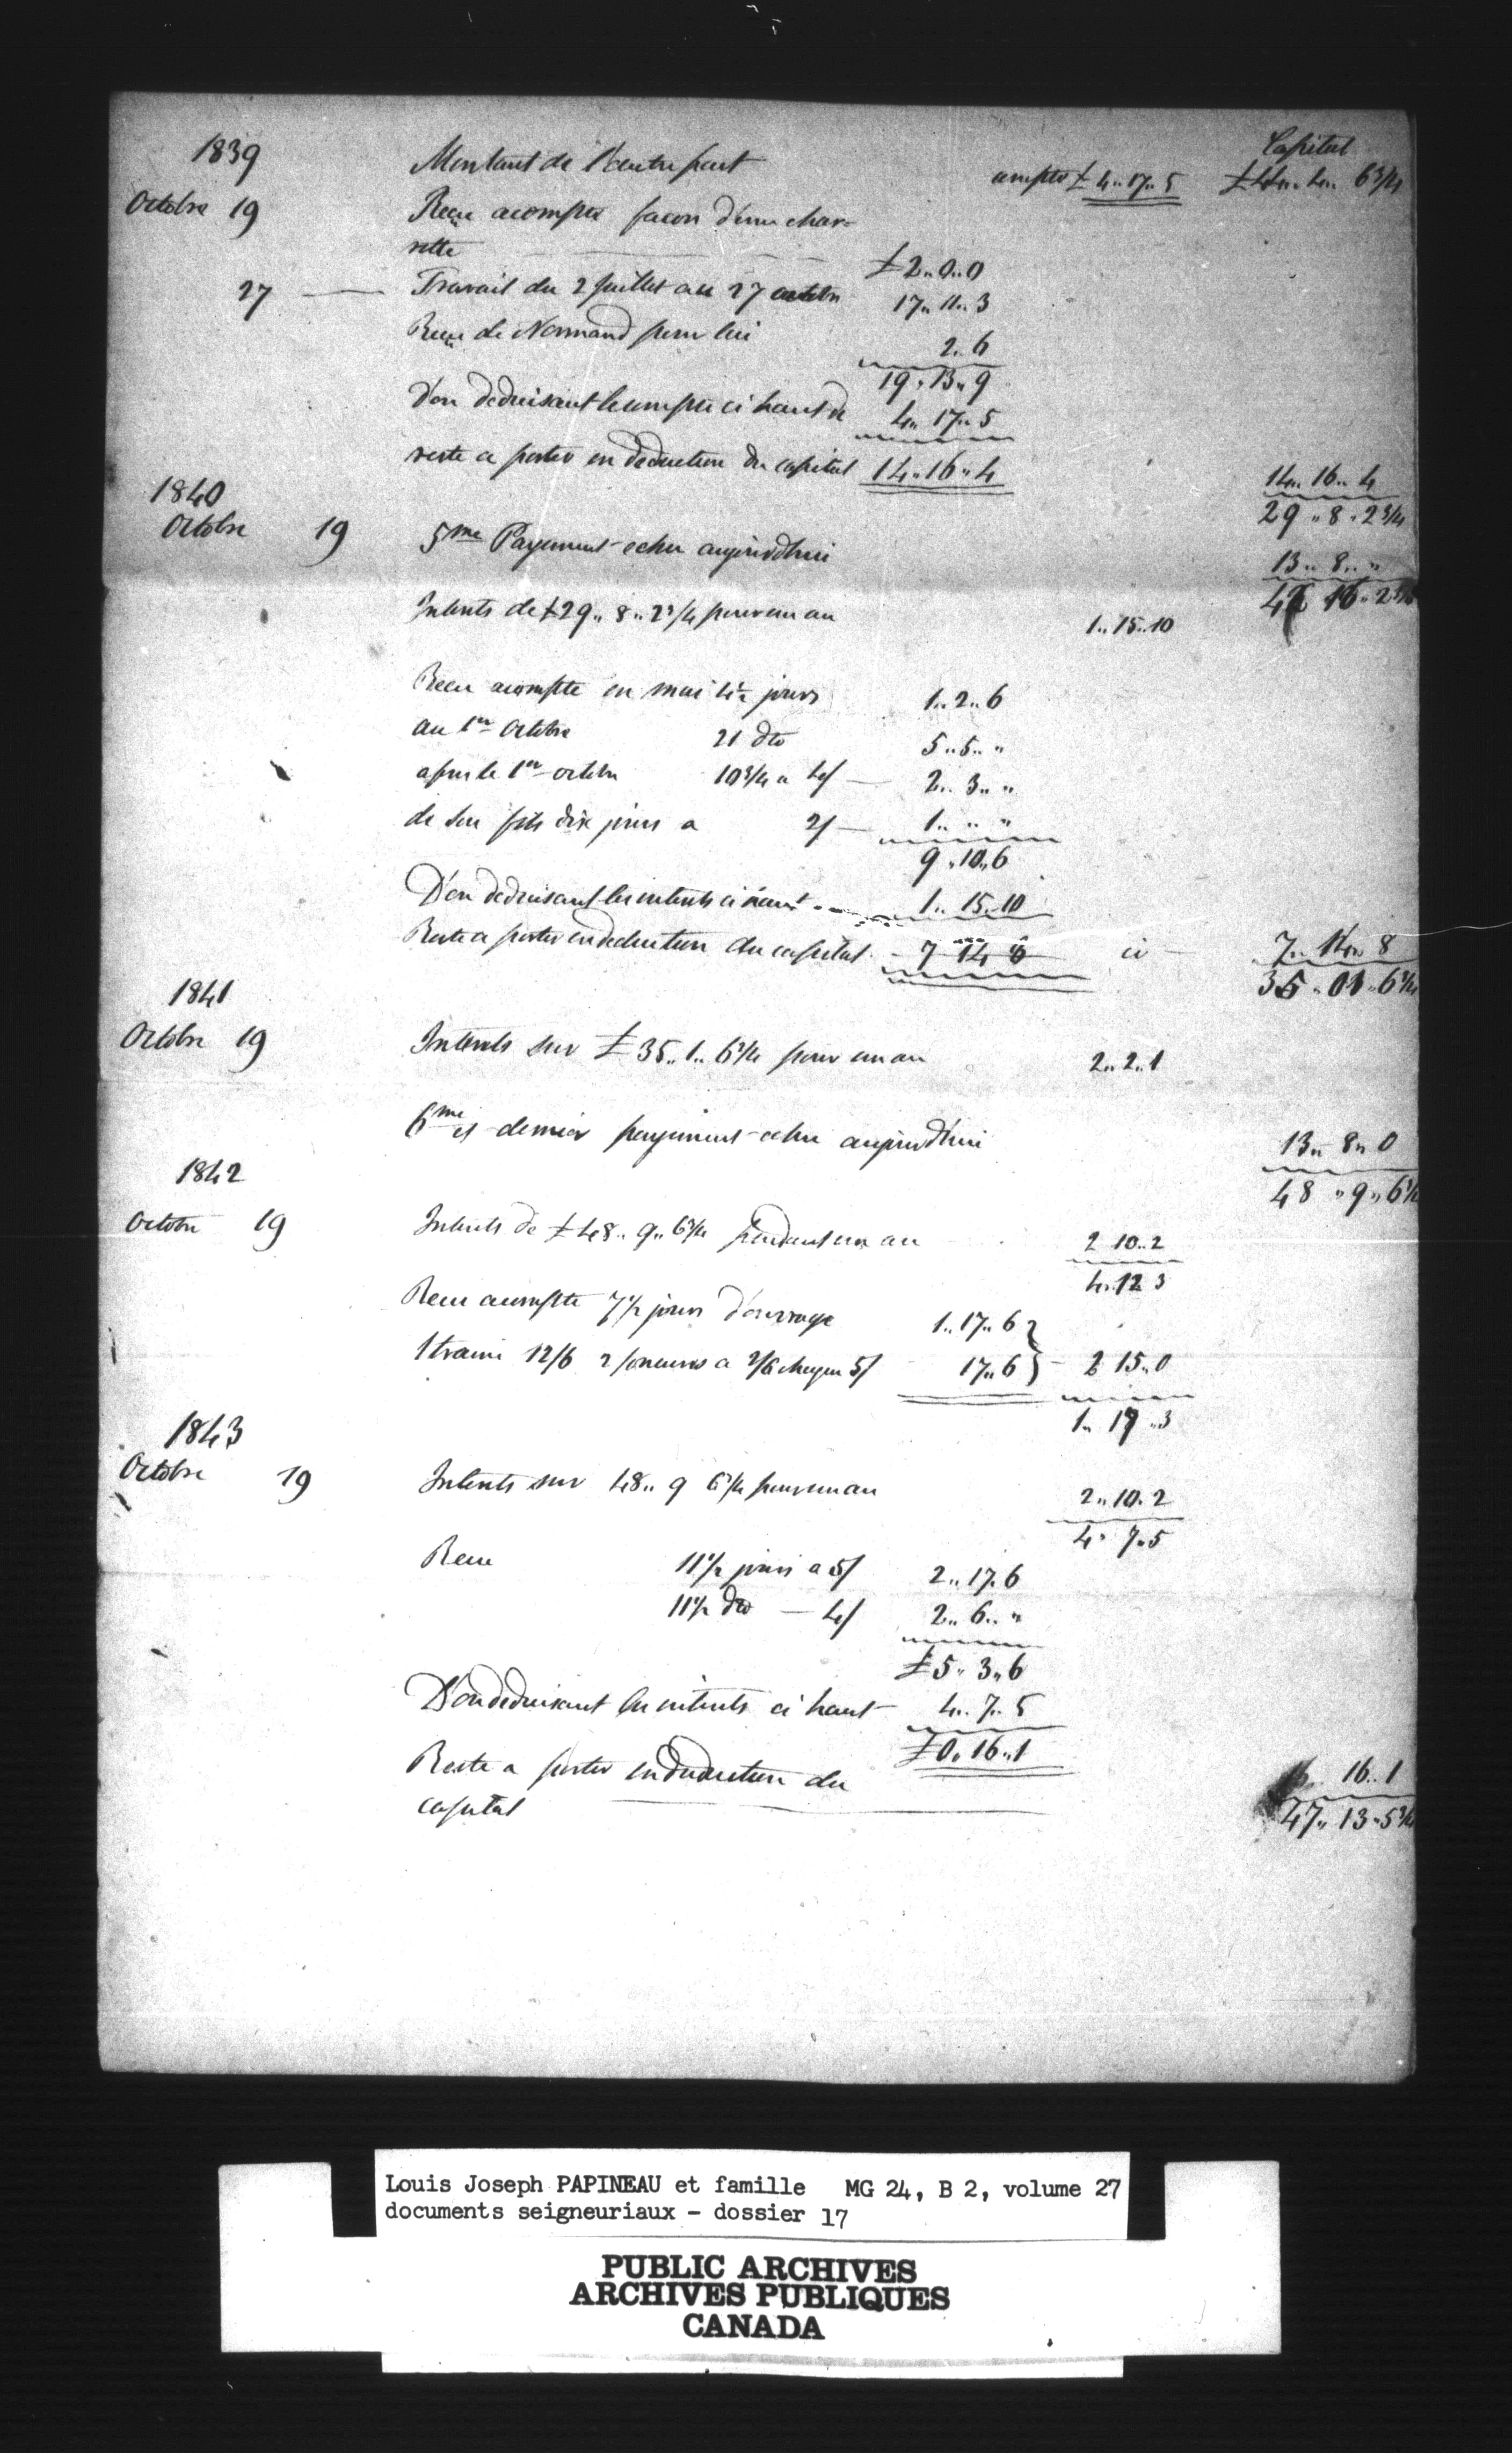 Capital
1839 Montant de l'autre part compte £ 4..17..5 £44..4.. 6 3/4
Octobre 19 Recu acompte facon d'une char-
rette £2..0..0
27 — Travail du 2 juillet au 27 octobre 17..11..3
Recu de Normand pour lui 2..6
19..13..9
D'ou deduisant le compte ci haut de 4..17..5
reste a porter en deduction du capital 14..16..4 14..16..4
1840 29..8..2 3/4
Octobre 19 5me Payement echu aujourdhui 13..8..„
42 16..2 3/4
Interets de £29..8..2 3/4 pour un an 1..15..10
Recu acompte en mai 4½ jours 1..2..6
au 1er Octobre 21 dto 5..5..„
apres le 1er octobre 10 3/4 a 4/ — 2..3..„
de son fils dix jours a 2/ — 1..„..„
9..10..6
D'ou deduisant les interets ci haut 1..15..10
Reste a porter en deduction du capital 7 14 8 ci — 7..14..8
35..01..6 3/4
1841
Octobre 19 Interets sur £35..1..6 3/4 pour un an 2..2..1
6me et dernier payement echu aujourdhui 13..8..0
1842 48..9..6 3/4
Octobre 19 Interets de £48..9..6 3/4 pendant un an 2 10..2
4..12 3
Recu acompte 7½ jours d'ouvrage 1..17..6
1 traine 12/6 2 a 2/6 chaque 5/ 17..6 — 2 15..0
1..17..3
1843
Octobre 19 Interets sur 48..9 6 3/4 pour un an 2..10..2
4..7..5
Recu 11½ jours a 5/ 2..17..6
11½ dto — 4/ 2..6..„
£5..3..6
D'ou deduisant les interets ci haut 4..7..5
£0..16..1
Reste a porter en deduction du
capital 16..1
47..13..5 3/4
Louis Joseph PAPINEAU et famille MG 24, B 2, volume 27
documents seigneuriaux - dossier 17
PUBLIC ARCHIVES
ARCHIVES PUBLIQUES
CANADA